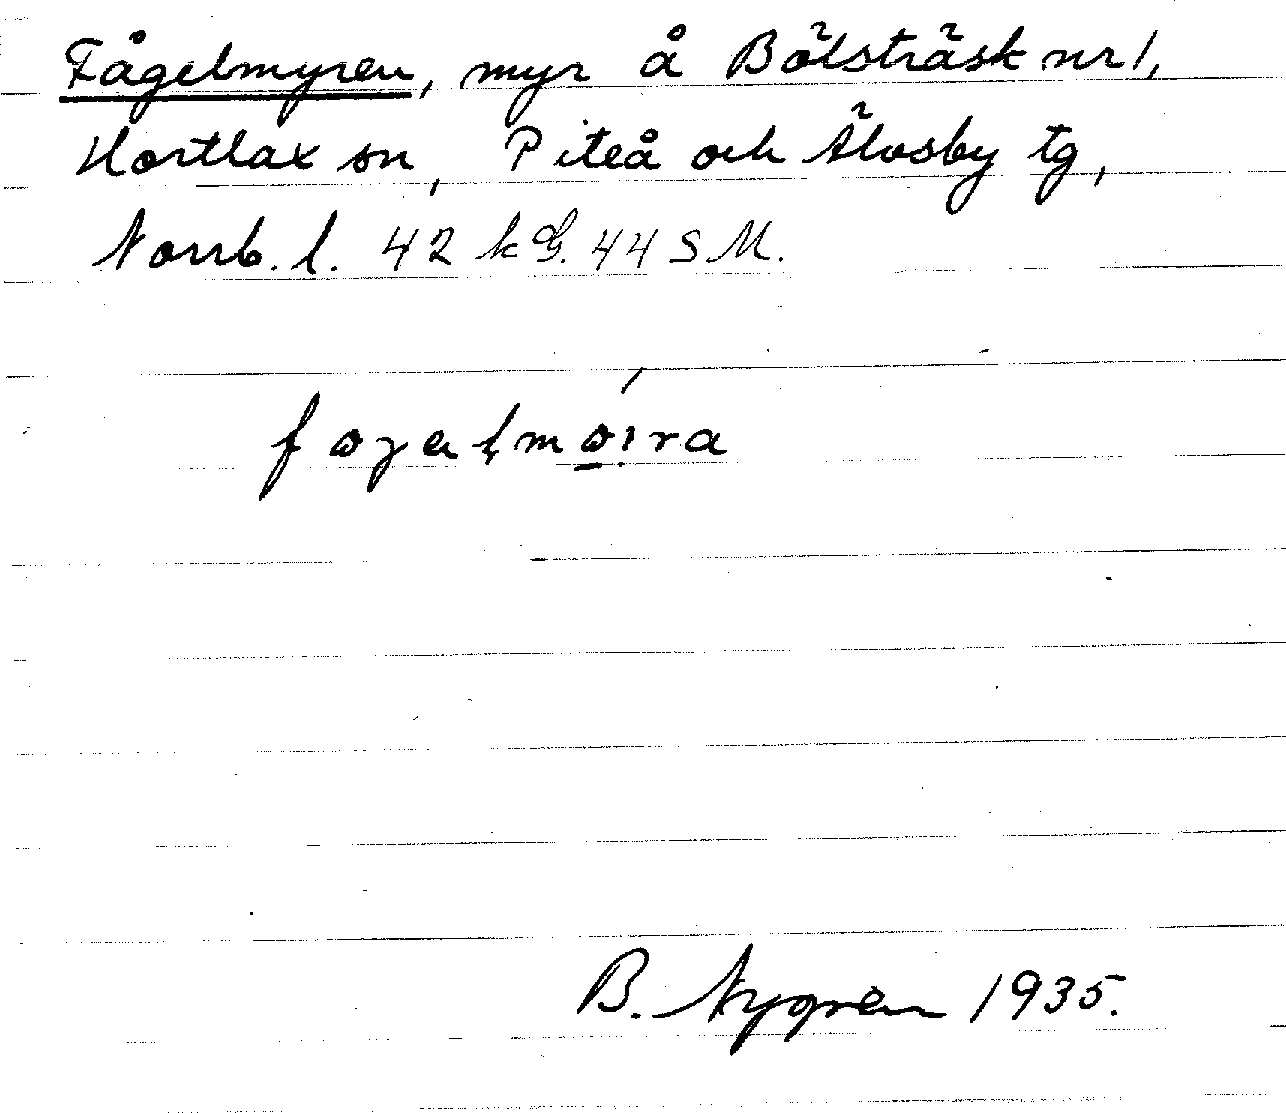 Fågelmyren, myr å Bölsträsk nr 1,
Hortlax sn, Piteå och Älvsby tg,
Norrb. l. 42 k G. 44 S M.
B. Nygren 1935.